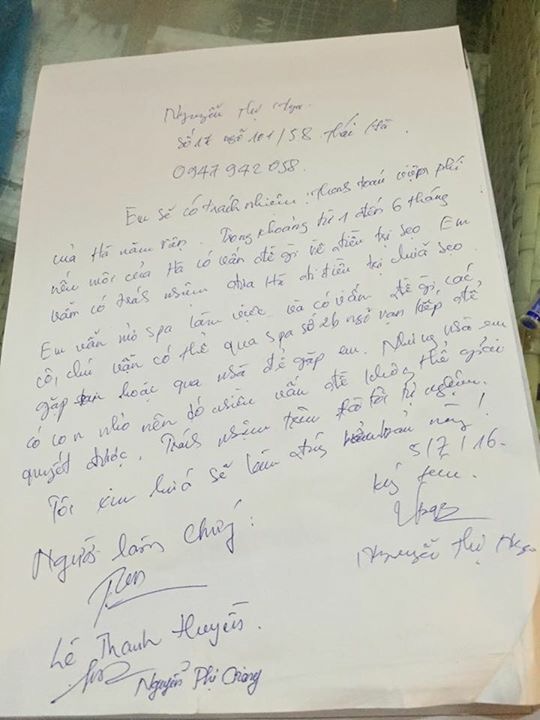 Nguyễn Thị Nga.
Số 17 ngõ 101/58 Thái Hà.
0947942058.
Em sẽ có trách nhiệm thanh toán viện phí
của Hà nằm viện. Trong khoảng từ 1 đến 6 tháng
nếu môi của Hà có vấn đề gì về điều trị sẹo. Em
vẫn có trách nhiệm đưa Hà đi điều trị chữa sẹo
Em vẫn mở spa làm việc và có vấn đề gì, các
cô, chú vẫn có thể qua spa số 26 ngõ vạn kiếp để
gặp hoặc qua nhà để gặp em. Nhưng nhà em
có con nhỏ nên đó nhiều vấn đề không thể giải
quyết được. Trách nhiệm trên
Tôi xin hứa sẽ làm đúng này!
5/7/16-
Ký tên.
Nga
Nguyễn Thị Nga
Người làm chứng:
Lê Thanh Huyền.
Nguyễn Phị Giang